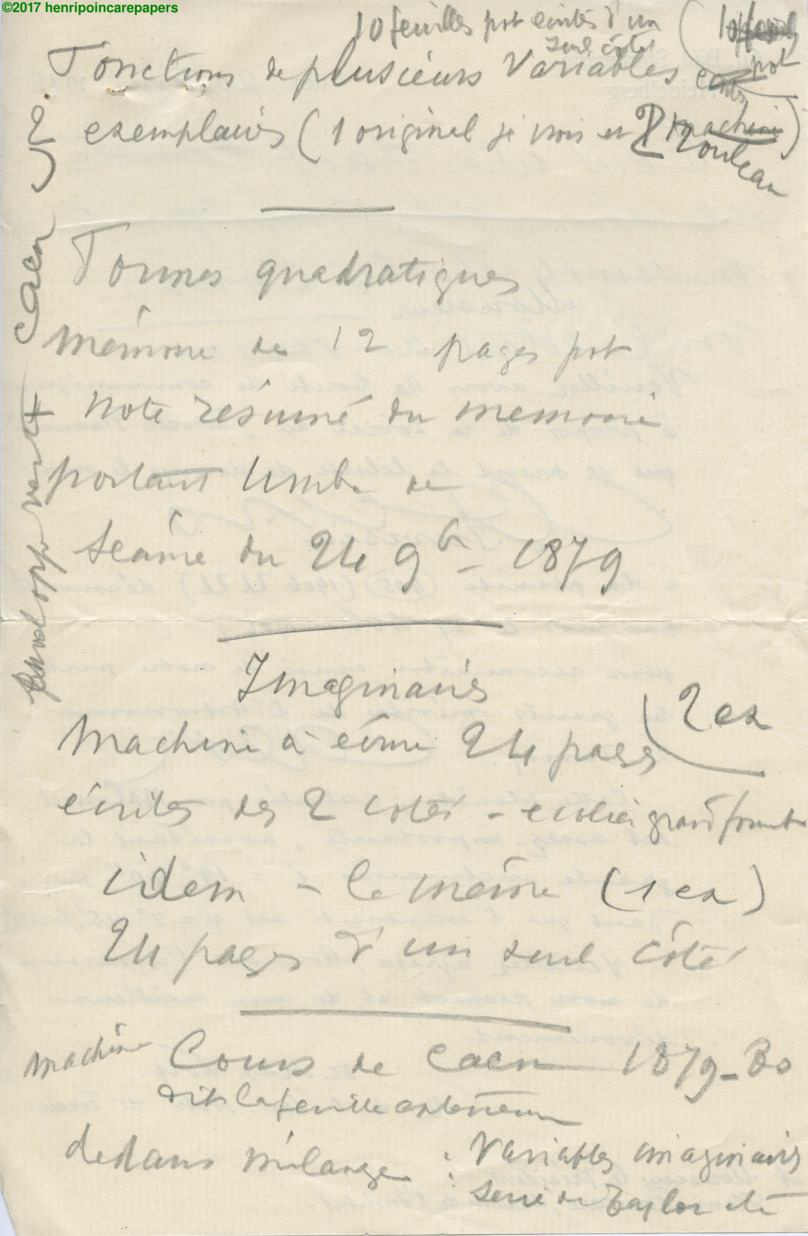 ©2017 henripoincarepapers
10 feuilles pot écrites d'un
seul côté
Fonctions de plusieurs Variables
exemplaires (1 original je crois et 2
rouleau
Formes quadratiques
Mémoire de 12 pages pot
Note résumé du mémoire
portant timbre de
Séance du 24 9b - 1879
Imaginaires
Machine à écrire 24 pages
2 ex
écrites des 2 côtés - écolier grand format
idem - le même (1 ex)
24 pages d'un seul côté
machine Cours de Caen 1879-80
dit la feuille extérieure
dedans mélange : Variables imaginaires
Série de Taylor etc
Caen